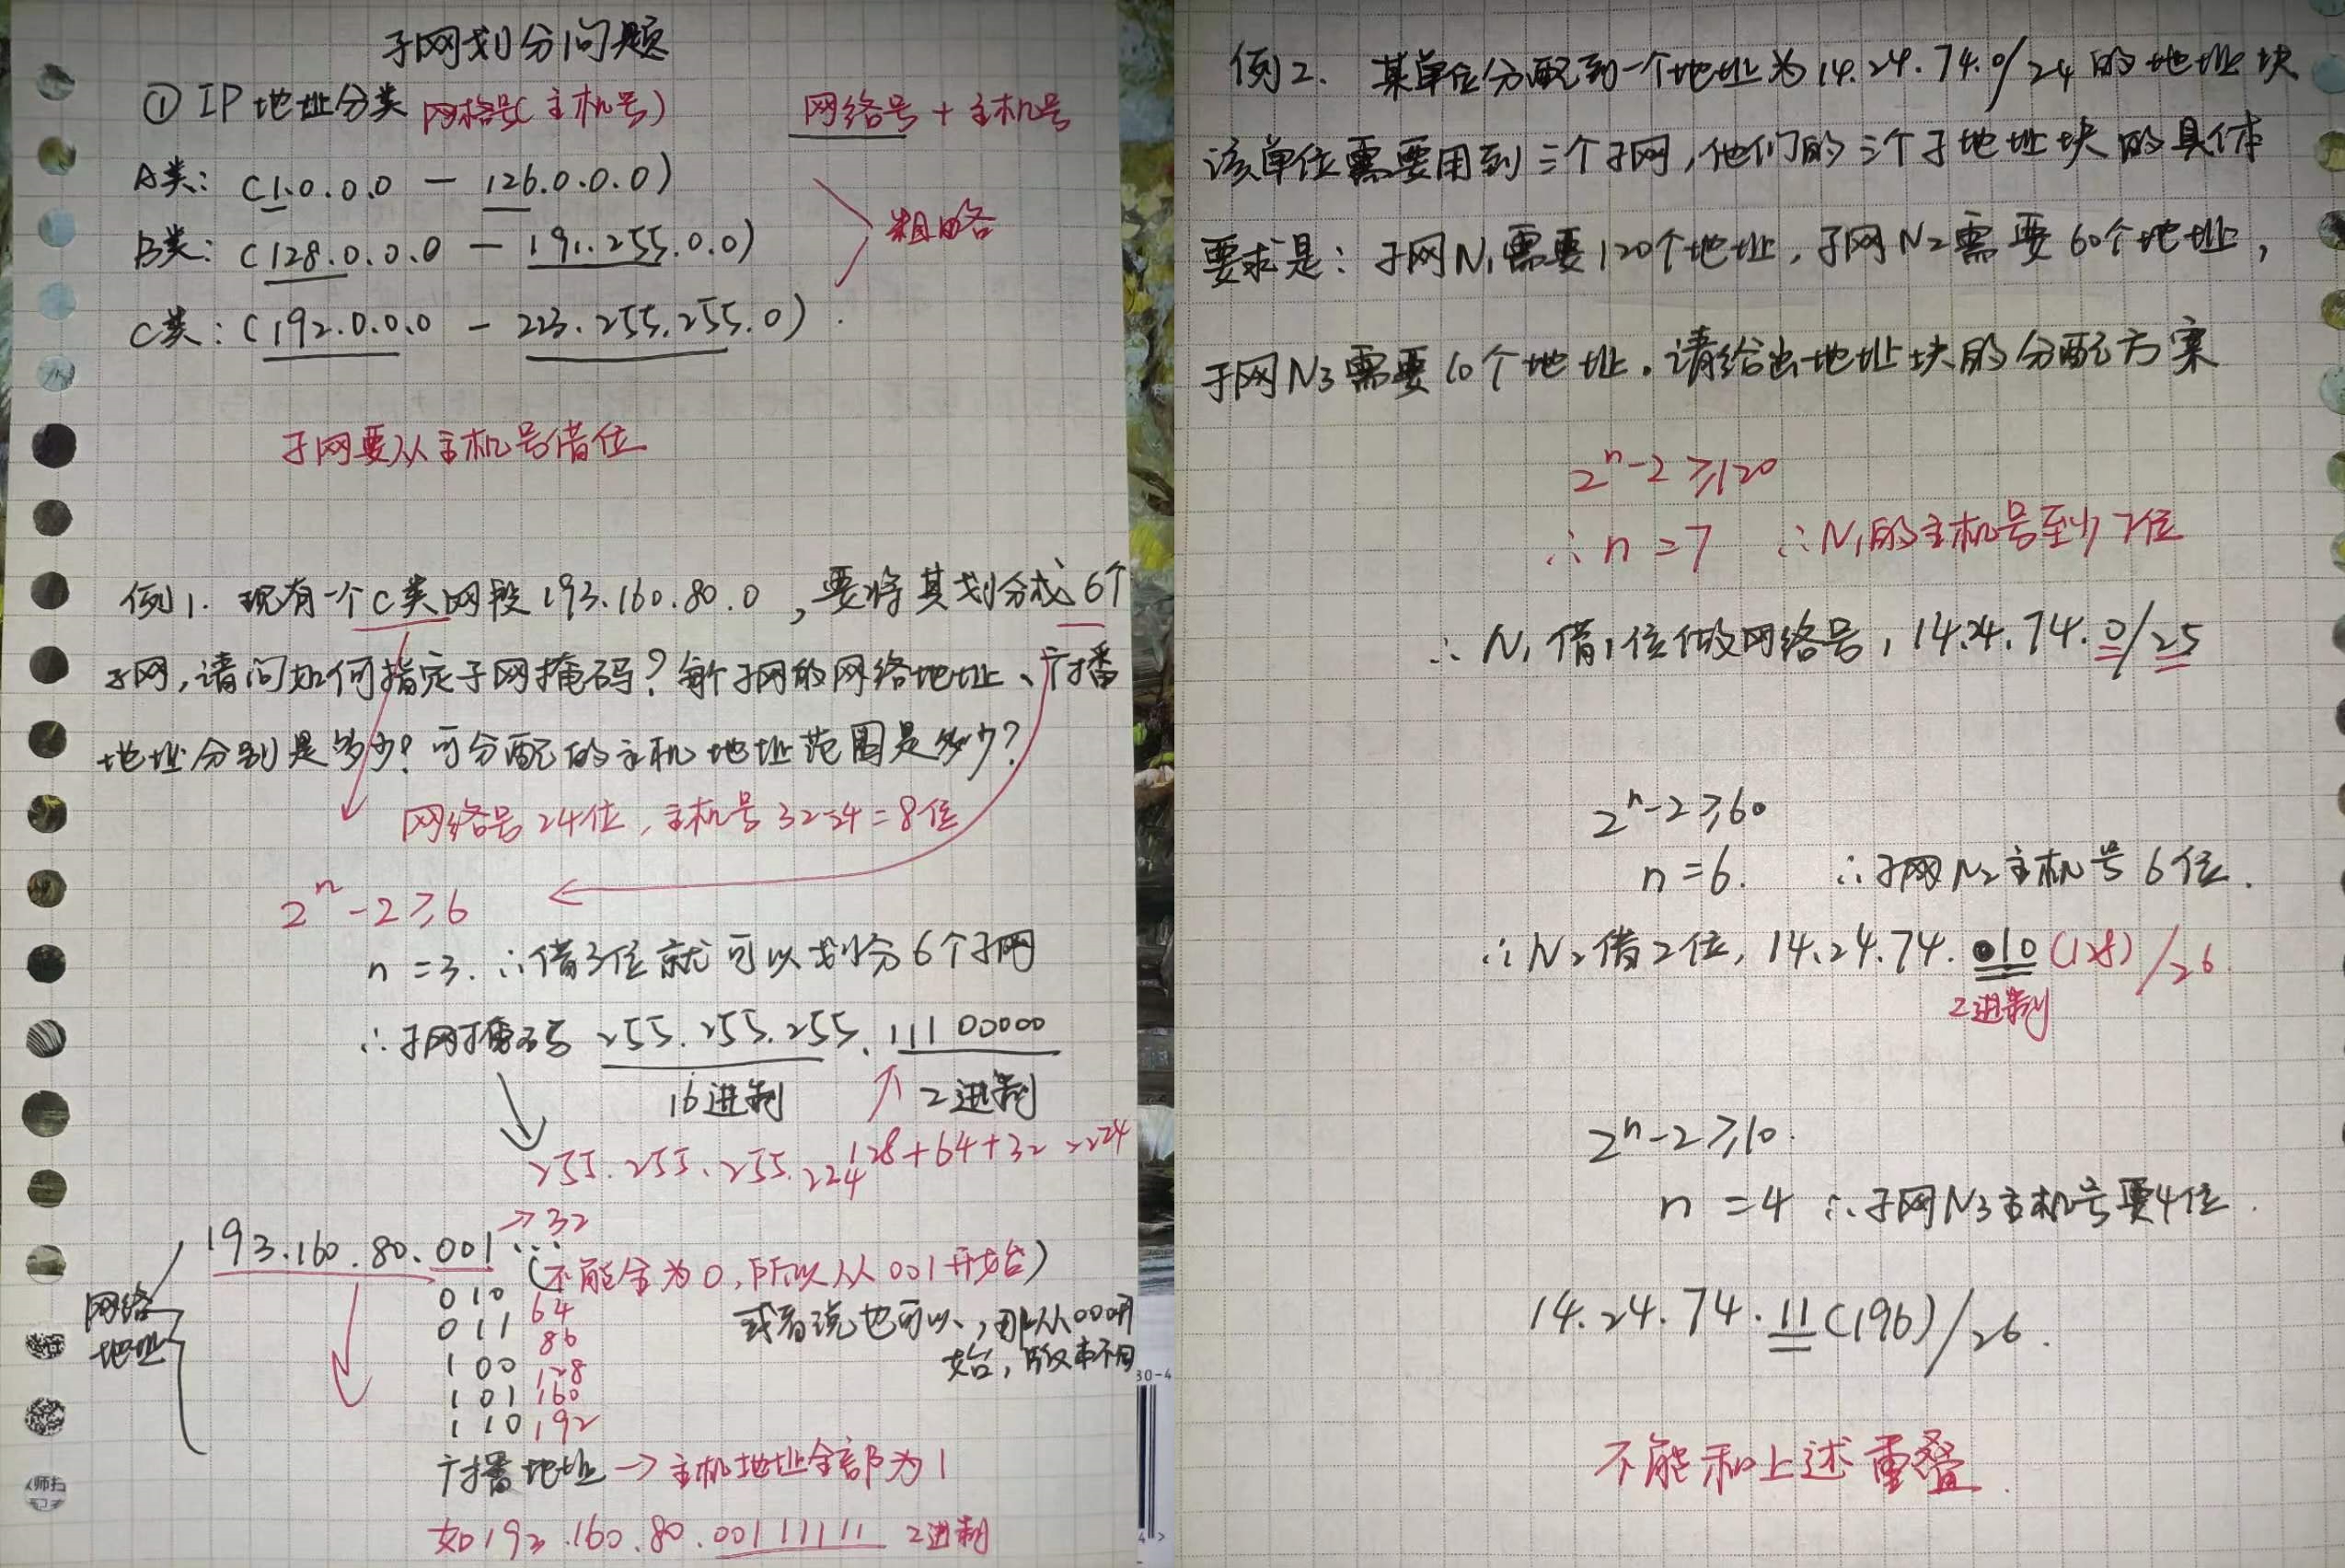 子网划分问题
① IP地址分类 网络号(主机号) 网络号 + 主机号
A类: (1.0.0.0 — 126.0.0.0)
B类: (128.0.0.0 — 191.255.0.0)
粗略
C类: (192.0.0.0 — 223.255.255.0)
子网要从主机号借位
例1. 现有一个C类网段193.160.80.0,要将其划分成6个
子网,请问如何指定子网掩码?每个子网的网络地址、广播
地址分别是多少?可分配的主机地址范围是多少?
网络号24位,主机号32-24=8位
2^n-2≥6
n=3. ∴借3位就可以划分6个子网
∴子网掩码 255.255.255.11100000
16进制 2进制
255.255.255.224 128+64+32=224
193.160.80.001... →32
(不能全为0,所以从001开始)
010 64
011 86
或者说也可以,那从000开
始,版本不同
100 128
101 160
110 192
网络
地址
广播地址→主机地址全部为1
如193.160.80.00111111 2进制
例2. 某单位分配到一个地址为14.24.74.0/24的地址块
该单位需要用到三个子网,他们的三个子地址块的具体
要求是:子网N1需要120个地址,子网N2需要60个地址,
子网N3需要10个地址.请给出地址块的分配方案
2^n-2≥120
∴n=7 ∴N1的主机号至少7位
∴N1借1位做网络号,14.24.74.0/25
2^n-2≥60
n=6. ∴子网N2主机号6位.
∴N2借2位,14.24.74.10(128)/26
2进制
2^n-2≥10.
n=4 ∴子网N3主机号要4位.
14.24.74.11(196)/26.
不能和上述重叠.